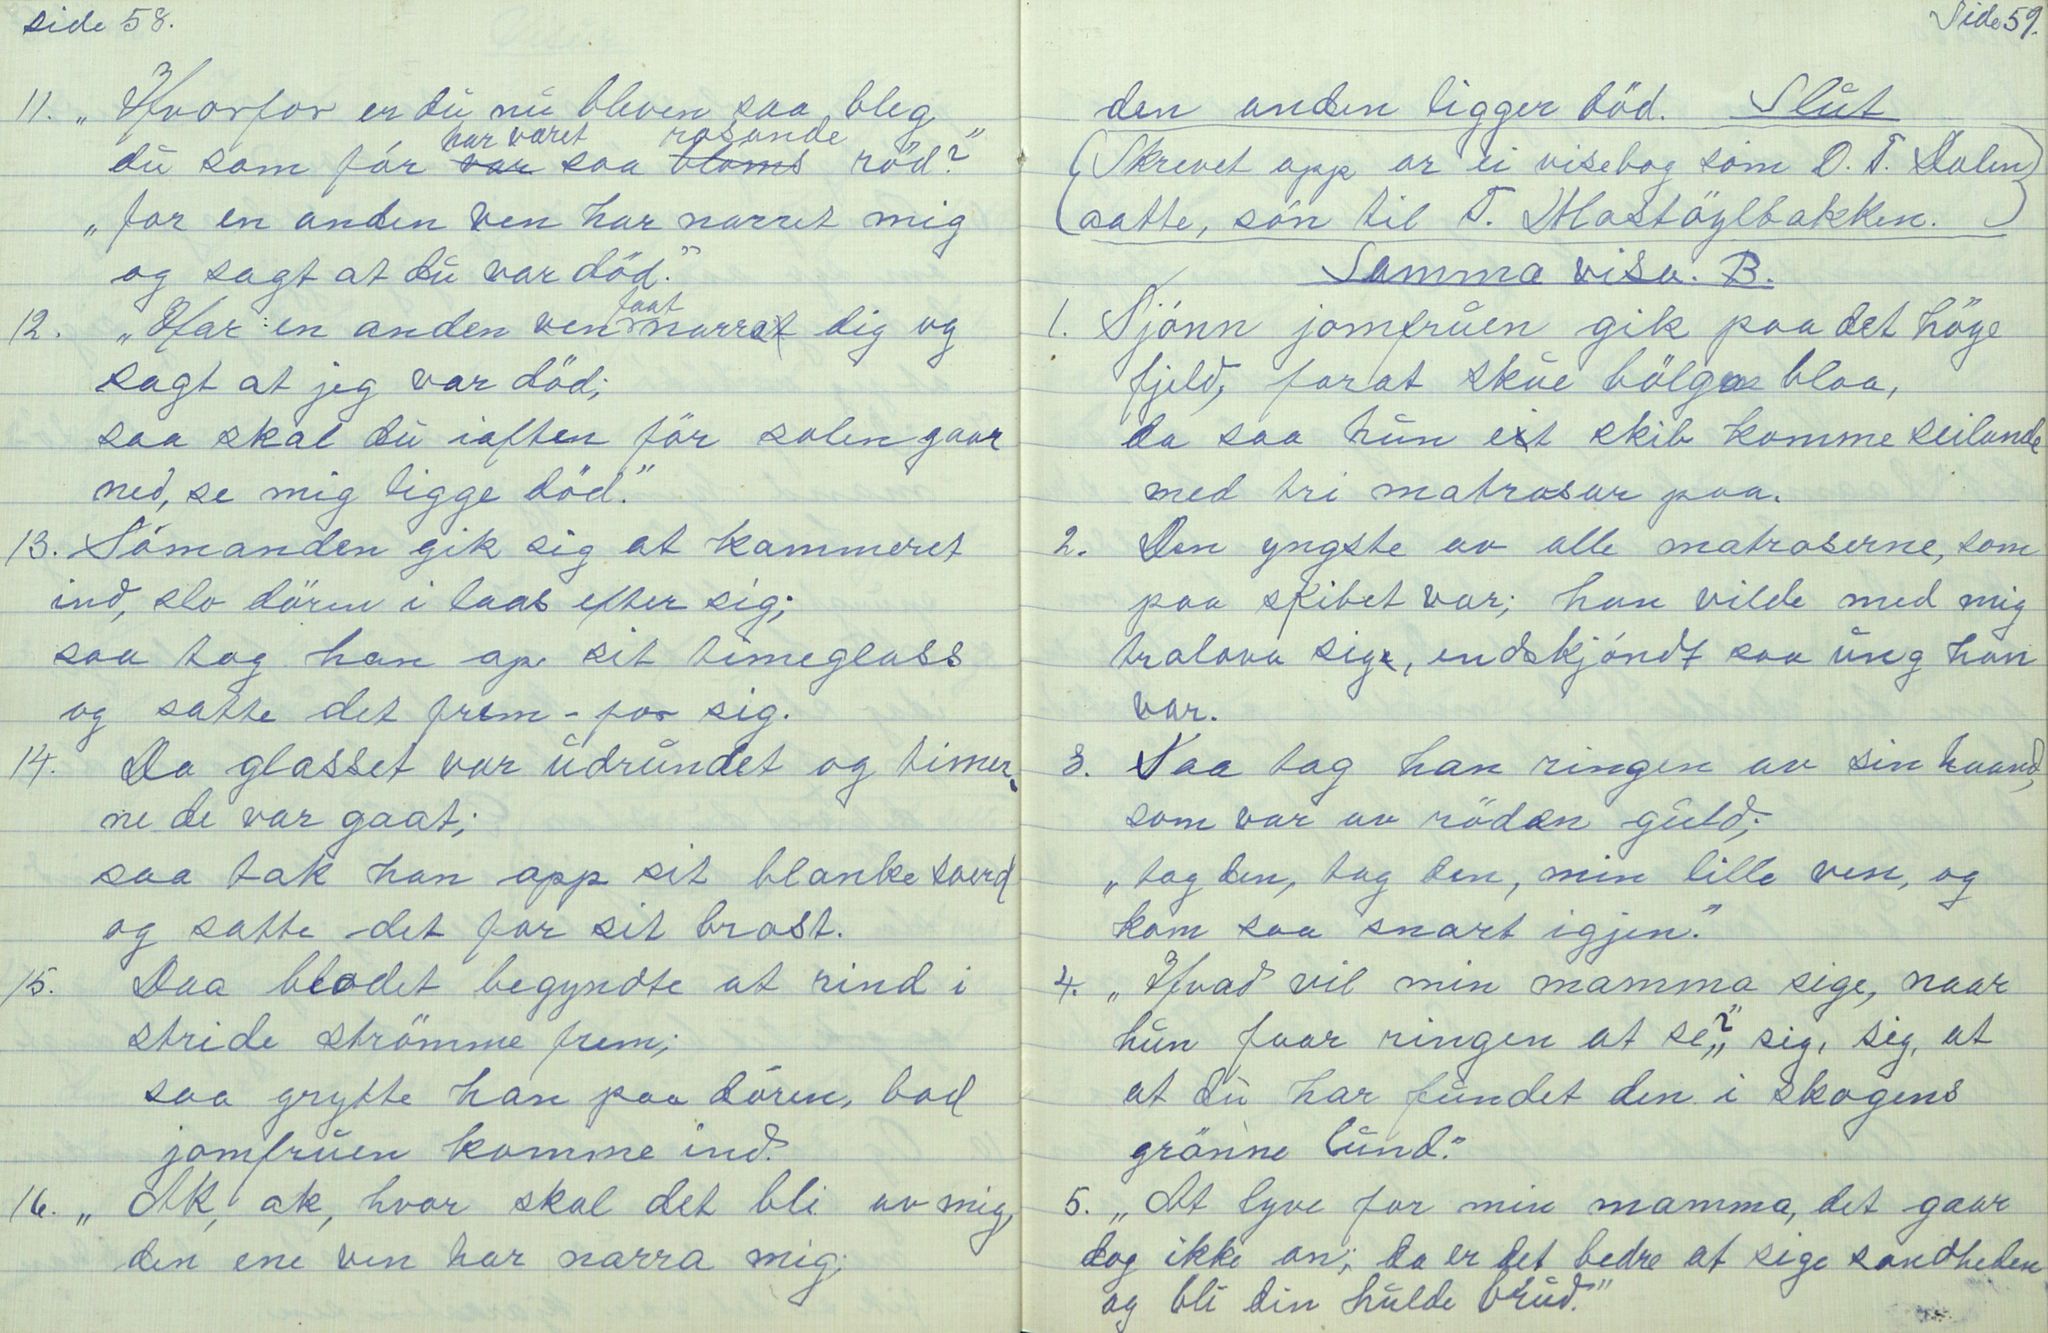 side 58.
11. „Hvorfor er du nu bleven saa bleg
har været rosande
du som för var saa bloms röd?"
„for en anden ven har narret mig
og sagt at du var död."
taat
12. „Har en anden ven narrat dig og
sagt at jeg var död;
saa skal du iaften för solen gaar
ned, se mig ligge död."
13. Sömanden gik sig at kammeret
ind, slo dören i laas efter sig;
saa tog han op sit timeglass
og satte det frem - for sig.
14. Da glasset var udrundet og timer-
ne de var gaat;
saa tok han opp sit blanke sverd
og satte det for sit brost.
15. Daa blodet begyndte at rind i
stride strömme frem;
saa grytte han paa dören, bad
jomfruen komme ind.
16. „Ak, ak, hvor skal det bli av mig,
den ene ven har narra mig;
Side 59.
den anden ligger död. Slut
(Skrevet opp or ei visebog som O. T. Dalen
satte, sön til T. Mostöylbakken.)
Samma visa. B.
1. Sjönn jomfruen gik paa det höge
fjeld, forat skue bölgne blaa,
da saa hun eit skib komme seilande
med tri matrosar paa.
2. Den yngste av alle matroserne, som
paa skibet var; han vilde med mig
tralova sig, endskjöndt saa ung han
var.
3. Saa tog han ringen av sin haand,
som var av röden guld;
„tag den, tag den, min lille ven, og
kom saa snart igjen."
4. „Hvad vil min mamma sige, naar
hun faar ringen at se?" „sig, sig, at
at du har fundet den i skogens
grönne lund."
5. „At lyve for min mamma, det gaar
dog ikke an; da er det bedre at sige sandheden
og bli din hulde brud."